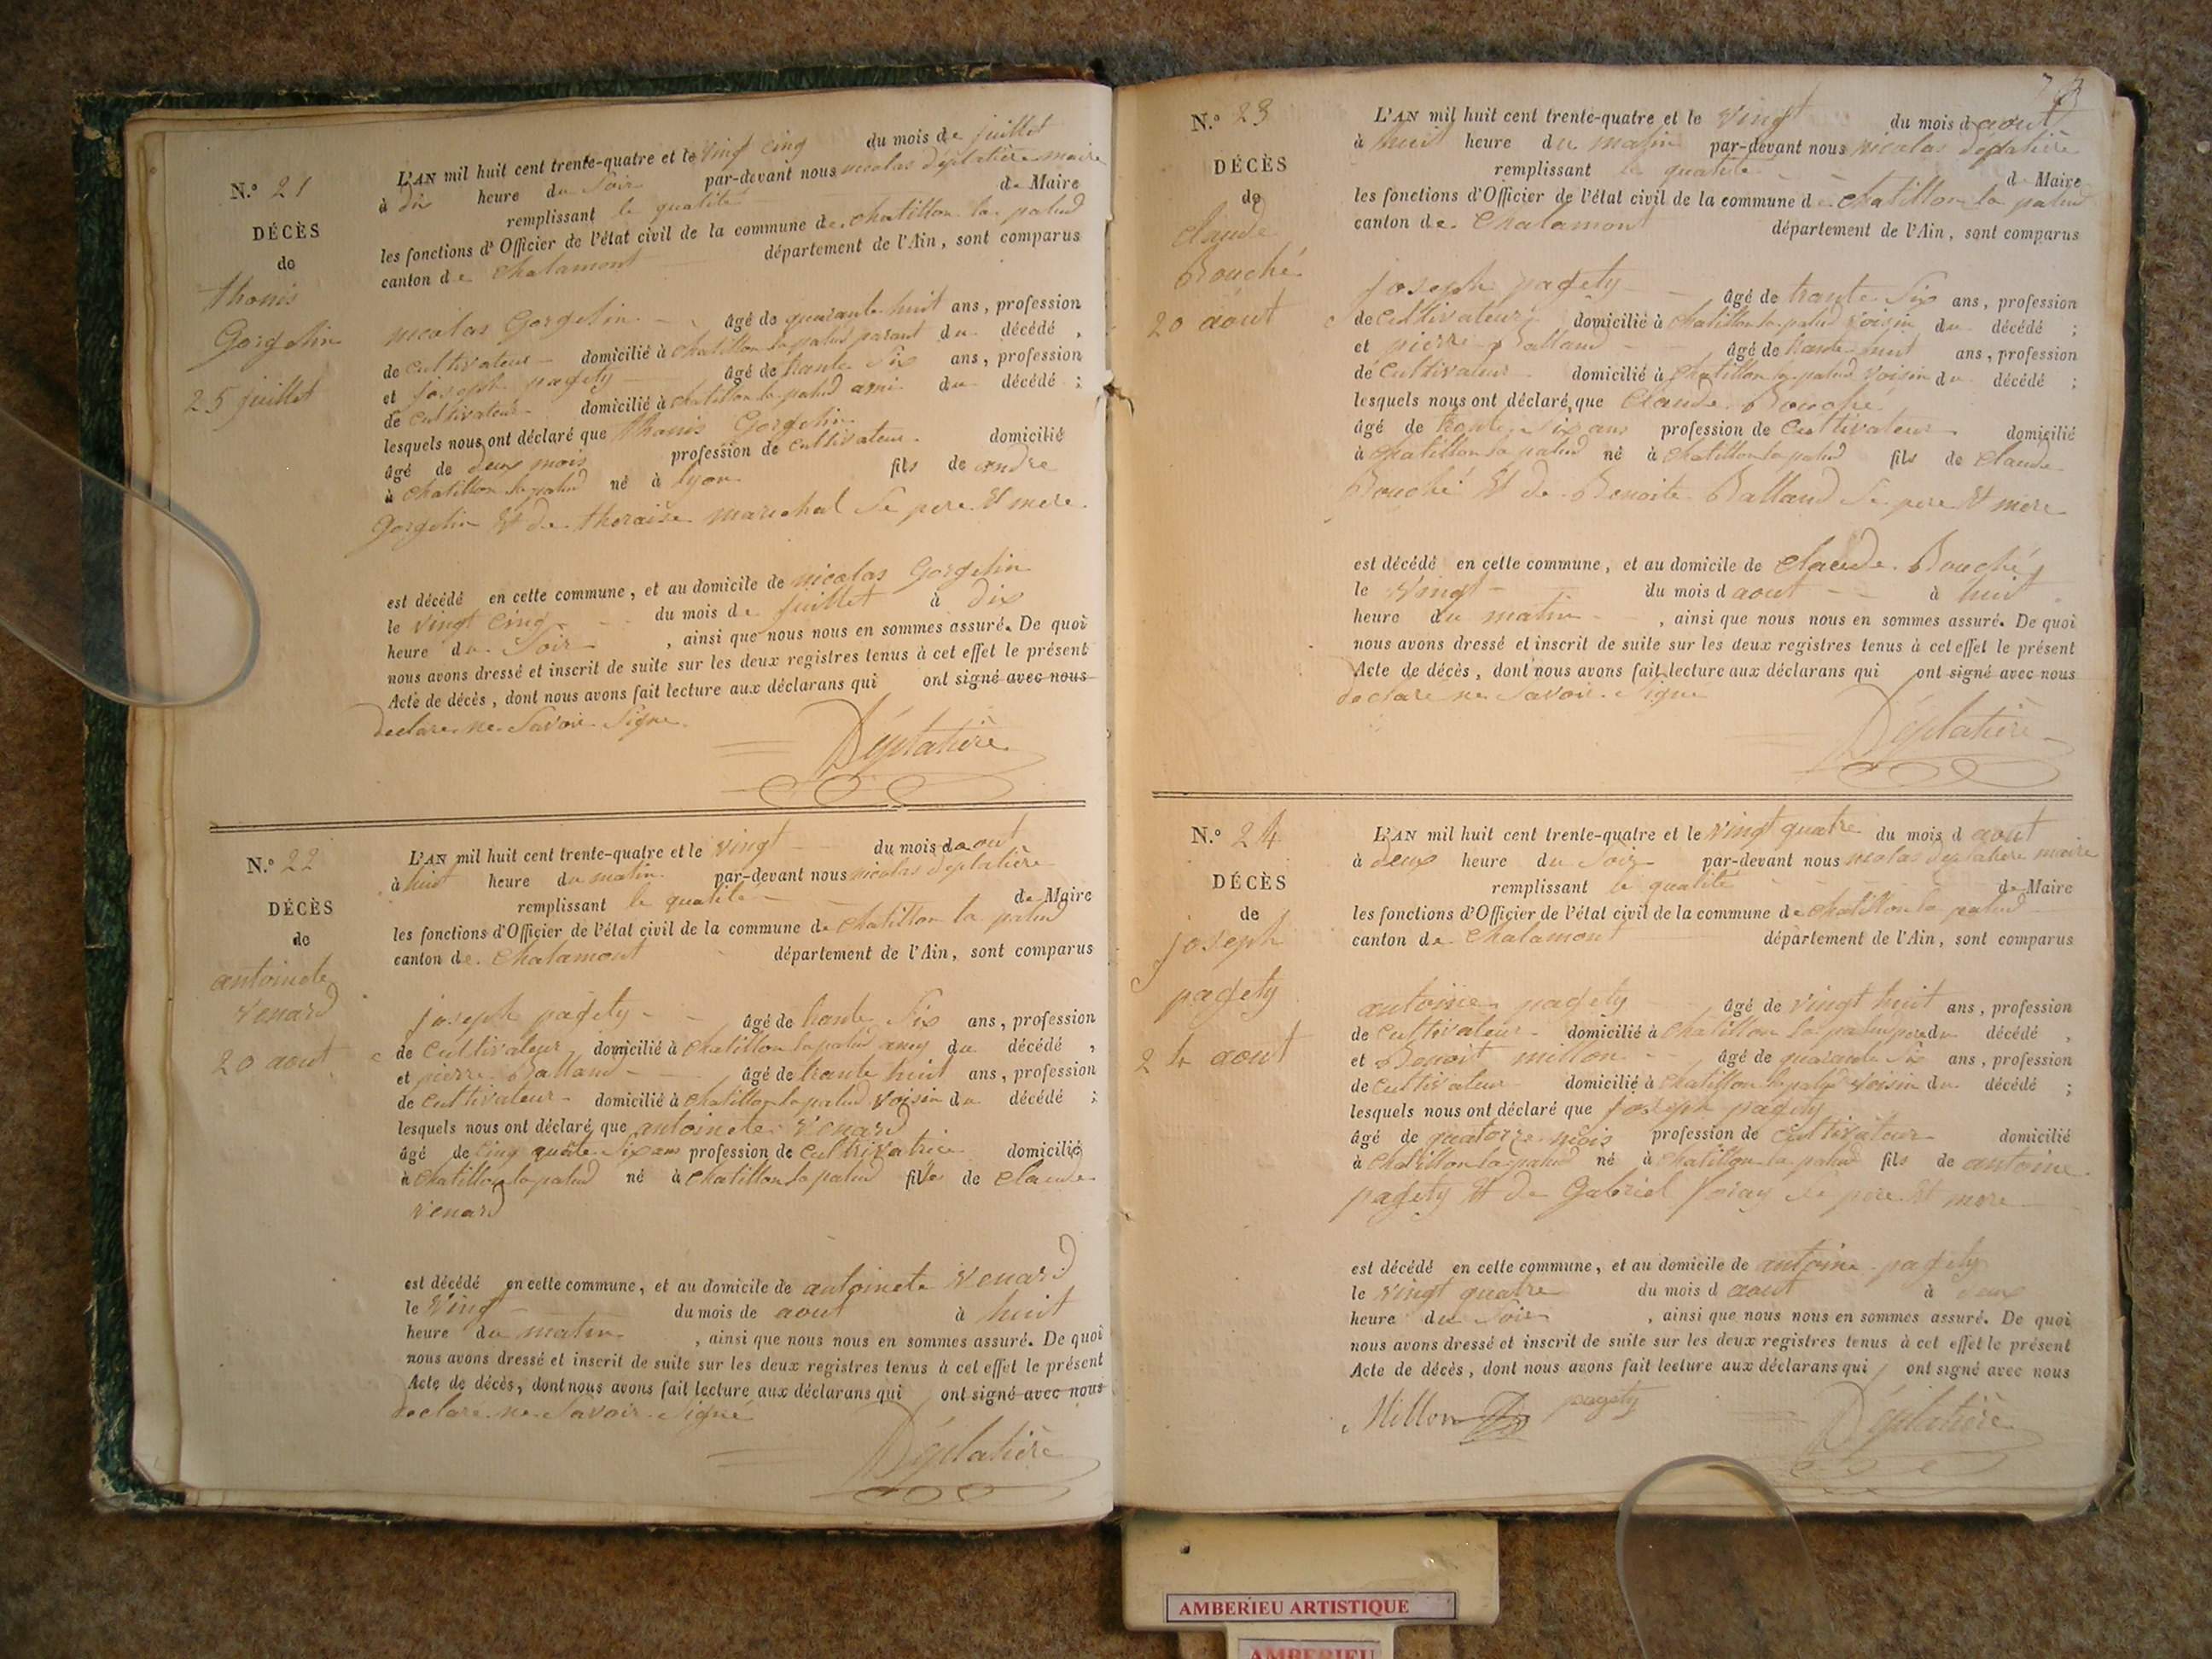 N.º 21
DÉCÈS
de
thonis
Gorgelin
25 juillet
L'AN mil huit cent trente-quatre et le vingt cinq du mois de juillet
à dix heure du Soir par-devant nous nicolas déplatière maire
remplissant le qualité de Maire
les fonctions d'Officier de l'état civil de la commune de chatillon la palud
canton de chalamont département de l'Ain, sont comparus
nicolas Gorgelin âgé de quarante huit ans, profession
de Cultivateur domicilié à chatillon la palud parant du décédé,
et joseph pagety âgé de trante Six ans, profession
de Cultivateur domicilié à chatillon la palud ami du décédé;
lesquels nous ont déclaré que thonis Gorgelin
âgé de deux mois profession de cultivateur domicilié
à chatillon la palud né à lyon fils de andre
Gorgelin Et de theraise marechal Se pere Et mere
est décédé en cette commune, et au domicile de nicolas Gorgelin
le vingt Cinq du mois de juillet à dix
heure du Soir, ainsi que nous nous en sommes assuré. De quoi
nous avons dressé et inscrit de suite sur les deux registres tenus à cet effet le présent
Acte de décès, dont nous avons fait lecture aux déclarans qui ont signé avec nous
declare ne Savoir Signe
Déplatière
N.º 22
DÉCÈS
de
antoinete
venard
20 aout
L'AN mil huit cent trente-quatre et le vingt du mois d aout
à huit heure du matin par-devant nous nicolas déplatière
remplissant le qualité de Maire
les fonctions d'Officier de l'état civil de la commune de chatillon la palud
canton de Chalamont département de l'Ain, sont comparus
joseph pagety âgé de trante Six ans, profession
de Cultivateur domicilié à chatillon la palud amy du décédé,
et pierre Balland âgé de trante huit ans, profession
de Cultivateur domicilié à chatillon la palud voisin du décédé;
lesquels nous ont déclaré que antoinete Venard
âgé de Cinq Six ans profession de Cultivatrice domicilié
à chatillon la palud né à chatillon la palud fille de Claude
venard
est décédé en cette commune, et au domicile de antoinete Venard
le Vingt du mois de aout à huit
heure du matin, ainsi que nous nous en sommes assuré. De quoi
nous avons dressé et inscrit de suite sur les deux registres tenus à cet effet le présent
Acte de décès, dont nous avons fait lecture aux déclarans qui ont signé avec nous
declare ne Savoir Signé
Déplatière
N.º 23
DÉCÈS
de
claude
Bouché
20 aout
L'AN mil huit cent trente-quatre et le Vingt du mois d aout
à huit heure du matin par-devant nous nicolas déplatière
remplissant le qualité de Maire
les fonctions d'Officier de l'état civil de la commune de chatillon la palud
canton de Chalamont département de l'Ain, sont comparus
joseph pagety âgé de trante Six ans, profession
de Cultivateur domicilié à chatillon la palud voisin du décédé;
et pierre Balland âgé de trante huit ans, profession
de Cultivateur domicilié à chatillon la palud voisin du décédé;
lesquels nous ont déclaré que Claude Bouché
âgé de trante Six ans profession de Cultivateur domicilié
à chatillon la palud né à chatillon la palud fils de claude
Bouché Et de Benoite Balland Se pere Et mere
est décédé en cette commune, et au domicile de Claude Bouché
le Vingt du mois d aout à huit
heure du matin, ainsi que nous nous en sommes assuré. De quoi
nous avons dressé et inscrit de suite sur les deux registres tenus à cet effet le présent
Acte de décès, dont nous avons fait lecture aux déclarans qui ont signé avec nous
declare ne Savoir Signe
Déplatière
N.º 24
DÉCÈS
de
joseph
pagety
24 aout
L'AN mil huit cent trente-quatre et le vingt quatre du mois d aout
à deux heure du Soir par-devant nous nicolas déplatière maire
remplissant le qualité de Maire
les fonctions d'Officier de l'état civil de la commune de chatillon la palud
canton de Chalamont département de l'Ain, sont comparus
antoine pagety âgé de vingt huit ans, profession
de Cultivateur domicilié à chatillon la palud pere du décédé,
et Benoit millon âgé de quarante Six ans, profession
de Cultivateur domicilié à chatillon la palud voisin du décédé;
lesquels nous ont déclaré que joseph pagety
âgé de quatorze mois profession de cultivateur domicilié
à chatillon la palud né à chatillon la palud fils de antoine
pagety Et de Gabriel Se pere Et mere
est décédé en cette commune, et au domicile de antoine pagety
le vingt quatre du mois d aout à deux
heure du Soir, ainsi que nous nous en sommes assuré. De quoi
nous avons dressé et inscrit de suite sur les deux registres tenus à cet effet le présent
Acte de décès, dont nous avons fait lecture aux déclarans qui ont signé avec nous
Millon pagety Déplatière
AMBERIEU ARTISTIQUE
AMBERIEU